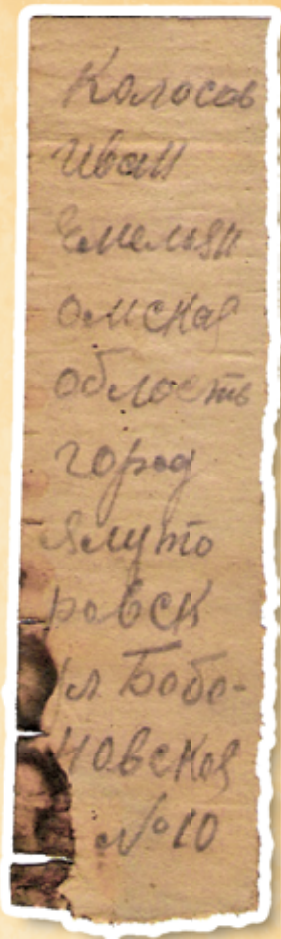 Колосов
Иван
Емельян
Омская
облость
город
Ялуто
ровск
ул Бобо-
новская
№10